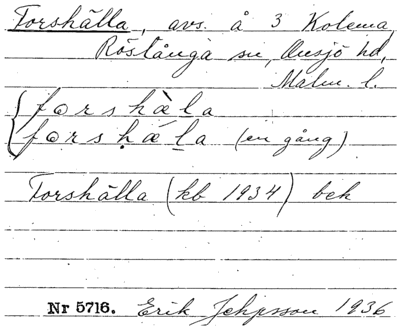 Torshälla, avs. å 3 Kolema,
Röstånga sn, Onsjö hd,
Malm. l.
forshàla
forsḥáḷa (en gång)
Torshälla (kb 1934) bek
Nr 5716. Erik Jehpsson 1936